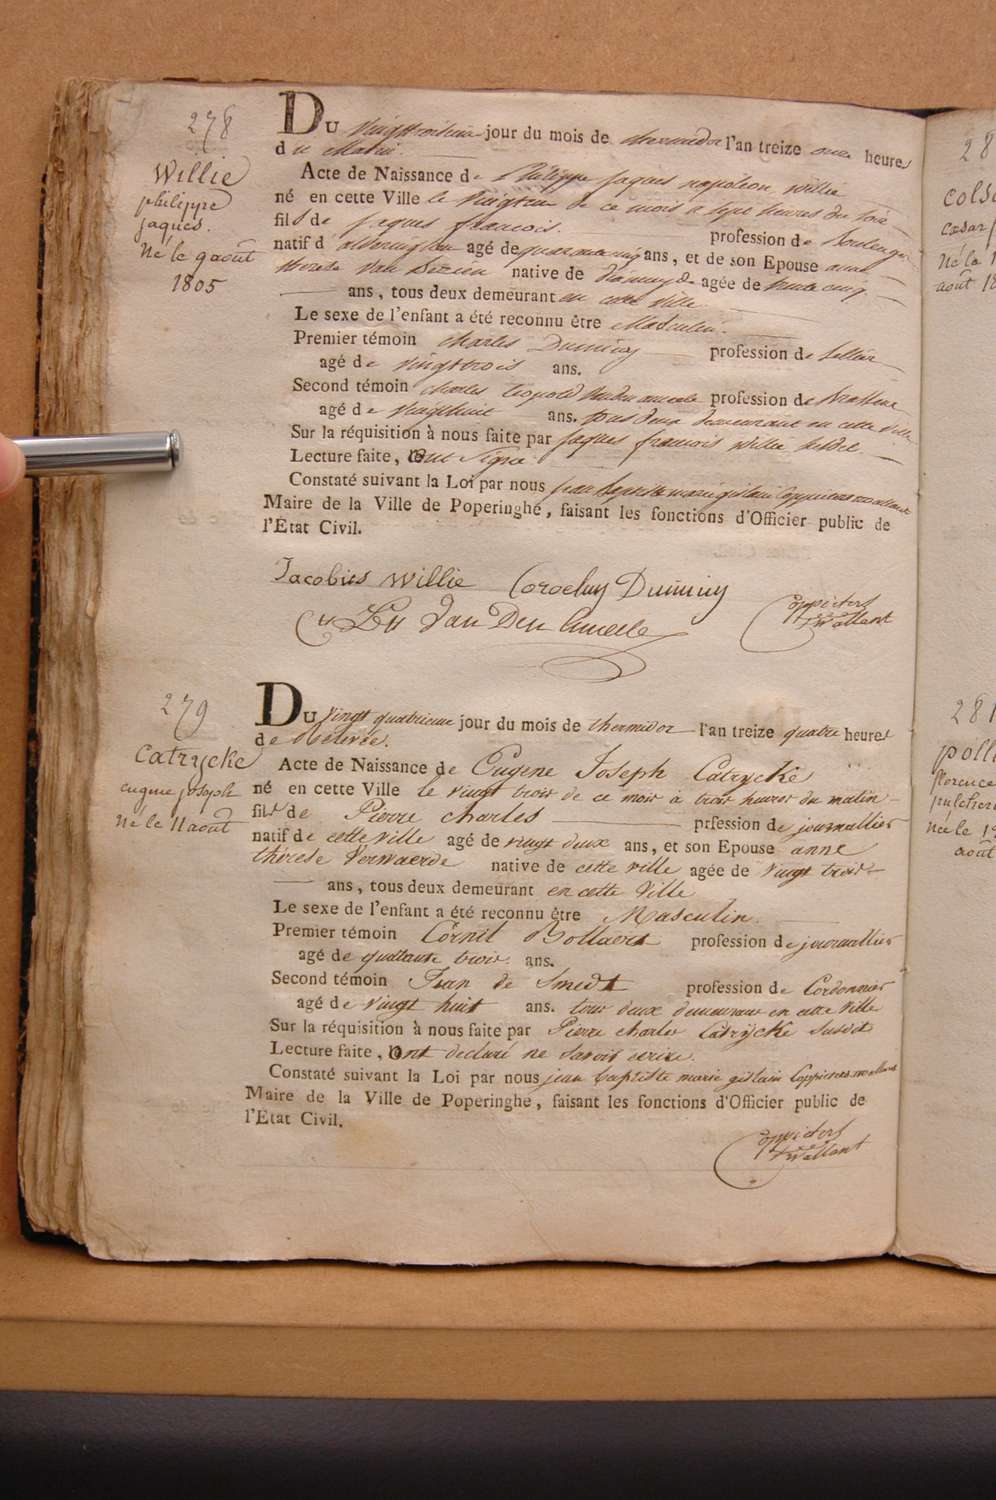 278
Willie
philippe
jaques.
Né le 9 août
1805
Du jour du mois de thermidor l'an treize onze heures
du Matin.
Acte de Naissance de Philippe jaques napoleon willie
né en cette Ville le de ce mois a sept heures du soir
fils de jaques francois. profession de
natif d' agé de ans, et de son Epouse anne
therese Van native de agée de trente cinq
ans, tous deux demeurant en cette ville
Le sexe de l'enfant a été reconnu être Masculin.
Premier témoin charles Duminy profession de Sellier
agé de vingttrois ans.
Second témoin charles Leopold profession de
agé de vingthuit ans. tous deux demeurant en cette ville
Sur la réquisition à nous faite par jaques francois willie susdit
Lecture faite, ont signé
Constaté suivant la Loi par nous jean baptiste marie gislain Coppieters
Maire de la Ville de Poperinghe, faisant les fonctions d'Officier public de
l'État Civil.
Jacobus Willie Duminy
Van Den Coppieters
279
Catrycke
eugene joseph
né le 11 août
Du vingt quatrieme jour du mois de thermidor l'an treize quatre heures
de Relevée.
Acte de Naissance de Eugene Joseph Catrycke
né en cette Ville le vingt trois de ce mois à trois heures du matin
fils de Pierre charles prfession de journallier
natif de cette ville agé de vingt deux ans, et son Epouse anne
thérese Verwaerde native de cette ville agée de vingt trois
ans, tous deux demeurant en cette Ville
Le sexe de l'enfant a été reconnu être Masculin.
Premier témoin Cornil Bollaert profession de journallier
agé de quarante trois ans.
Second témoin Jean de Smedt profession de Cordonnier
agé de vingt huit ans. tous deux demeurant en cette Ville
Sur la réquisition à nous faite par Pierre charles Catrycke susdit
Lecture faite, ont declaré ne savoir ecrire.
Constaté suivant la Loi par nous jean baptiste marie gislain Coppieters
Maire de la Ville de Poperinghe, faisant les fonctions d'Officier public de
l'État Civil.
Coppieters
28
cols
cesar
né le 1
août 1
281
poll
florence
né le 1
août